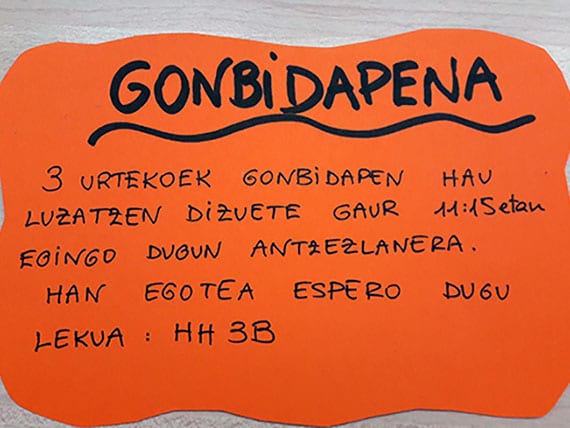 GONBiDAPENA
3 URTEKOEK GONBiDAPEN HAU
LUZATZEN DiZUETE GAUR 11:15etan
EGiNGO DUGUN ANTZEZLANERA.
HAN EGOTEA ESPERO DUGU
LEKUA : HH 3B